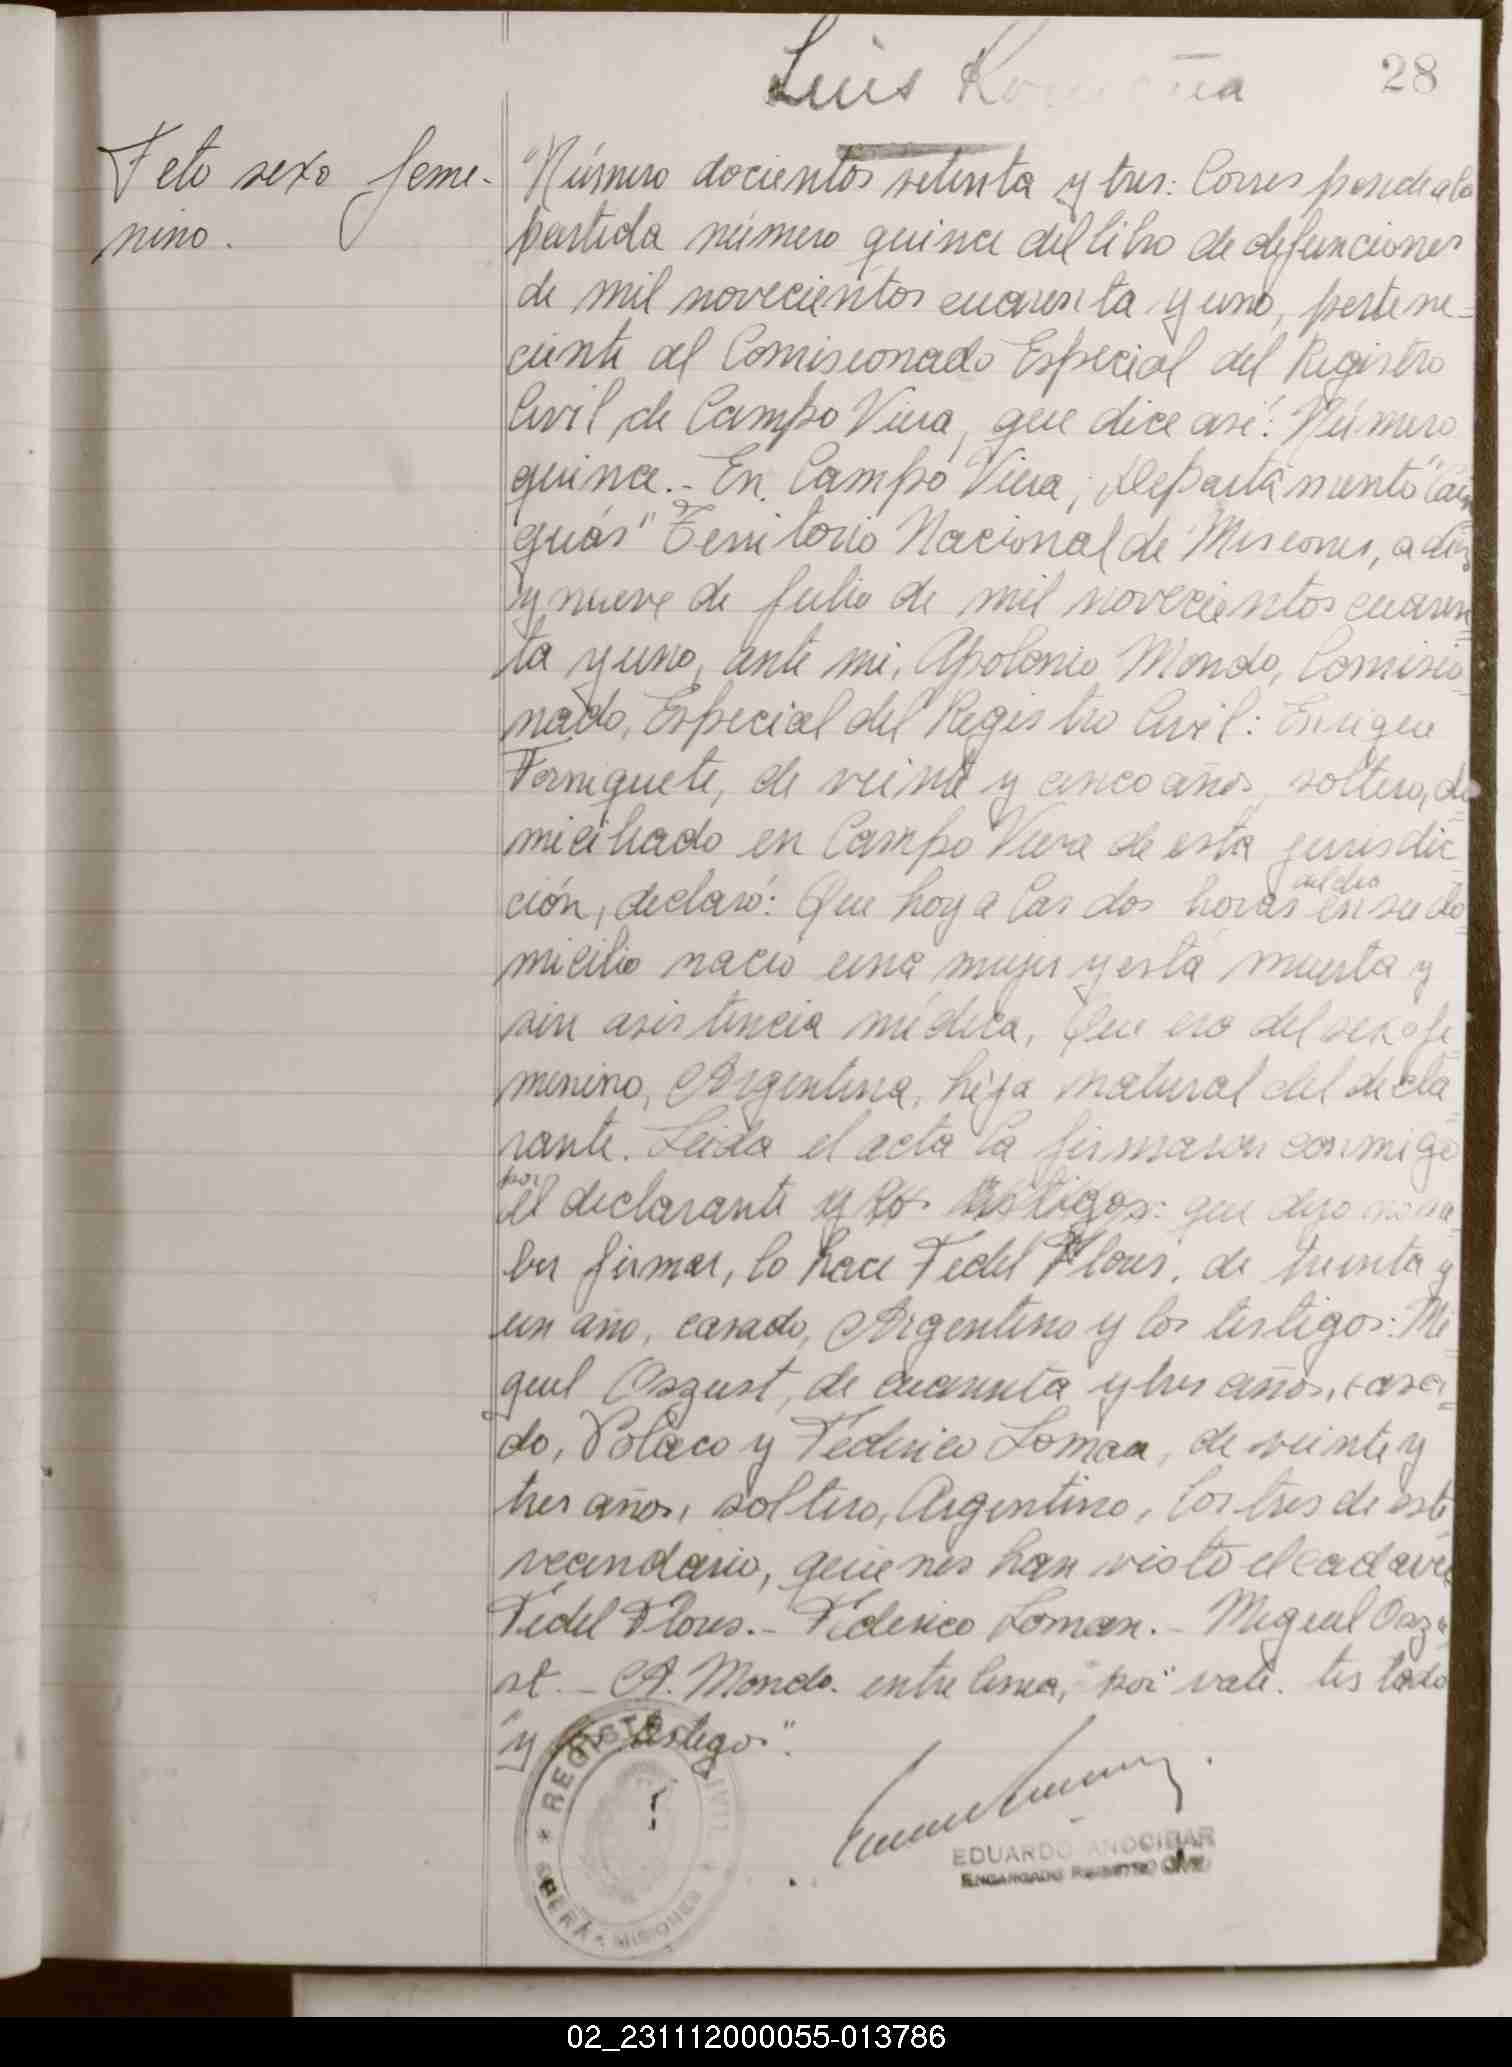 Luis
28
Feto sexo feme-
nino.
"Número docientos setenta y tres: Corresponde a la
partida número quince del libro de defunciones
de mil novecientos cuarenta y uno, pertene-
ciente al Comisionado Especial del Registro
Civil de Campo Viera, que dice así: Número
quince.- En Campo Viera, Departamento "Cain
guás" Territorio Nacional de Misiones, a diez
y nueve de Julio de mil novecientos cuaren-
ta y uno, ante mi, Apolonio Mondo, Comisio-
nado, Especial del Registro Civil: Enrique
Forniquete, de veinte y cinco años, soltero, do-
miciliado en Campo Viera de esta jurisdic-
ción, declaró: Que hoy a las dos horas en su do-
del dia
micilio nació una mujer y está muerta y
sin asistencia médica, Que era del sexo fe-
menino, Argentina, hija natural del decla-
rante. Leida el acta la firmaron conmigo
por
el declarante y los testigos: que dijo no sa-
ber firmar, lo hace Fidel Flores, de treinta y
un año, casado, Argentino y los testigos: Mi-
guel Oszust, de cuarenta y tres años, casa-
do, Polaco y Federico Loman, de veinte y
tres años, soltero, Argentino, los tres de este
vecindario, quienes han visto el cadaver
Fidel Flores.- Federico Loman.- Miguel Oszu-
st.- A. Mondo. entre linea, "por" vale. testado
"y los testigos".
REGISTRO CIVIL
OBERÁ * MISIONES
EDUARDO ANDCIBAR
ENCARGADO REGISTRO CIVIL
02_231112000055-013786